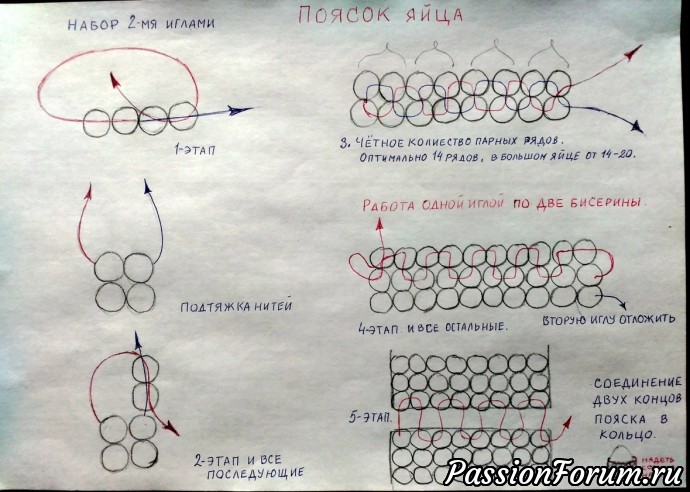 ПОЯСОК ЯЙЦА
НАБОР 2-МЯ ИГЛАМИ
1-ЭТАП
ПОДТЯЖКА НИТЕЙ
2-ЭТАП И ВСЕ
ПОСЛЕДУЮЩИЕ
3. ЧЁТНОЕ КОЛИЕСТВО ПАРНЫХ РЯДОВ.
ОПТИМАЛЬНО 14 РЯДОВ, В БОЛЬШОМ ЯЙЦЕ ОТ 14-20.
РАБОТА ОДНОЙ ИГЛОЙ ПО ДВЕ БИСЕРИНЫ.
4-ЭТАП И ВСЕ ОСТАЛЬНЫЕ.
ВТОРУЮ ИГЛУ ОТЛОЖИТЬ
5-ЭТАП.
СОЕДИНЕНИЕ
ДВУХ КОНЦОВ
ПОЯСКА В
КОЛЬЦО.
НАДЕТЬ
PassionForum.ru